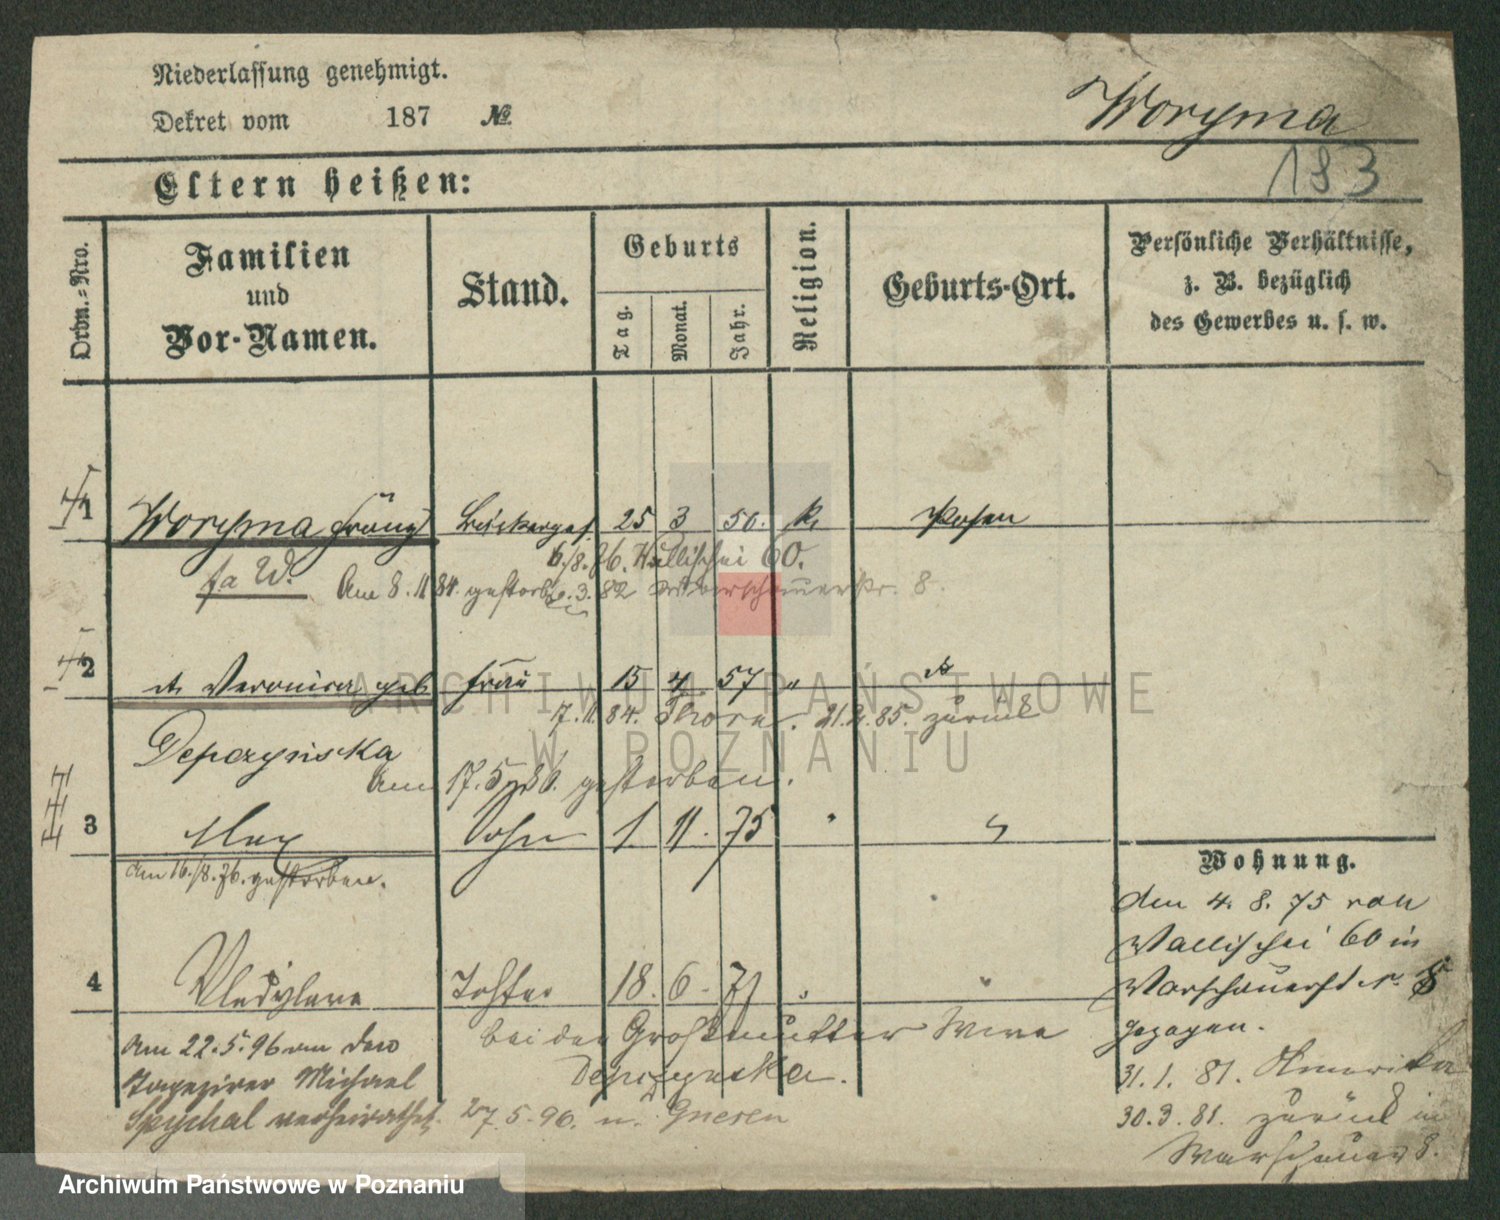 Niederlassung genehmigt.
Dekret vom 187 №
Woryma
183
Eltern heißen:
Ordn.=Nro.
Familien
und
Vor-Namen.
Stand.
Geburts
Tag.
Monat.
Jahr.
Religion.
Geburts-Ort.
Persönliche Verhältnisse,
z. B. bezüglich
des Gewerbes u. s. w.
1 Woryma Franz Bäckerges. 25 3 50. k. Posen
6./8.76. Wallischei 60.
fa W. Am 8.11.84. gestorben .3.82 Warschauerstr. 8.
2 Veronica geb. Frau 15 4 57 "
17.11.84. Thorn. 21.2.85. zurück
Depczyńska
Am 17.5. gestorben.
3 Max Sohn 1. 11. 75 "
am 16./8.76. gestorben.
Wohnung.
den 4. 8. 75 von
Wallischei 60 in
Warschauerst Nr. 8
gezogen.
31.1. 81. Amerika
30.3.81. zurück in
Warschauer 8.
4 Wladyslawa Tochter 18. 6. 77 "
bei der Großmutter Wwe
Depczynska.
Am 22.5.96 an den
Tapezirer Michael
Spychal verheirathet. 27.5.96. n. Gnesen
ARCHIWUM PAŃSTWOWE
W POZNANIU
Archiwum Państwowe w Poznaniu